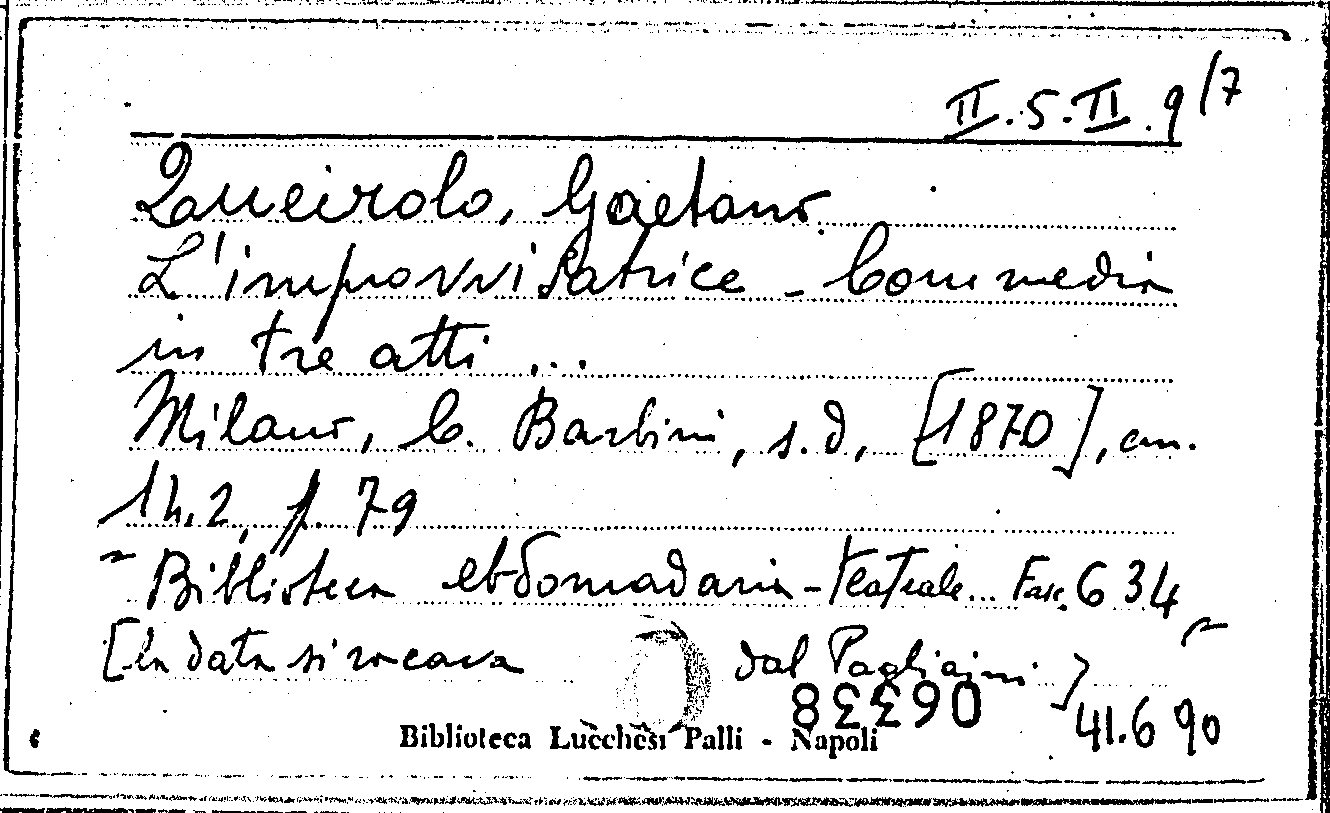 II.5.II.9/7
Queirolo, Gaetano.
L'improvvisatrice - Commedia
in tre atti ...
Milano, C. Barbini, s.d, [1870], cm.
14.2, p. 79
"Biblioteca ebdomadaria-teatrale... Fasc. 634"
[La data si ricava dal Pagliaini]
06338
41.690
Biblioteca Lucchesi Palli - Napoli